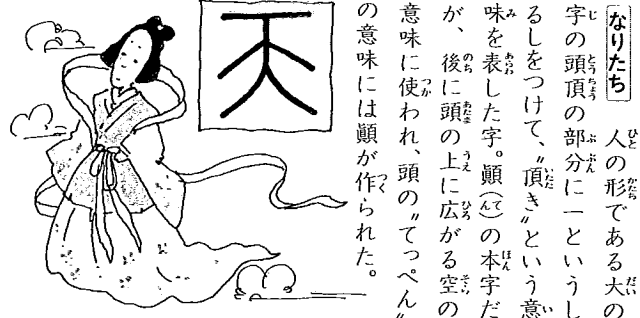 なりたち 人の形である大の
字の頭頂の部分に一というし
るしをつけて、〝頂き〟という意
味を表した字。顚(てん)の本字だ
が、後に頭の上に広がる空の
意味に使われ、頭の〝てっぺん〟
の意味には顚が作られた。
天